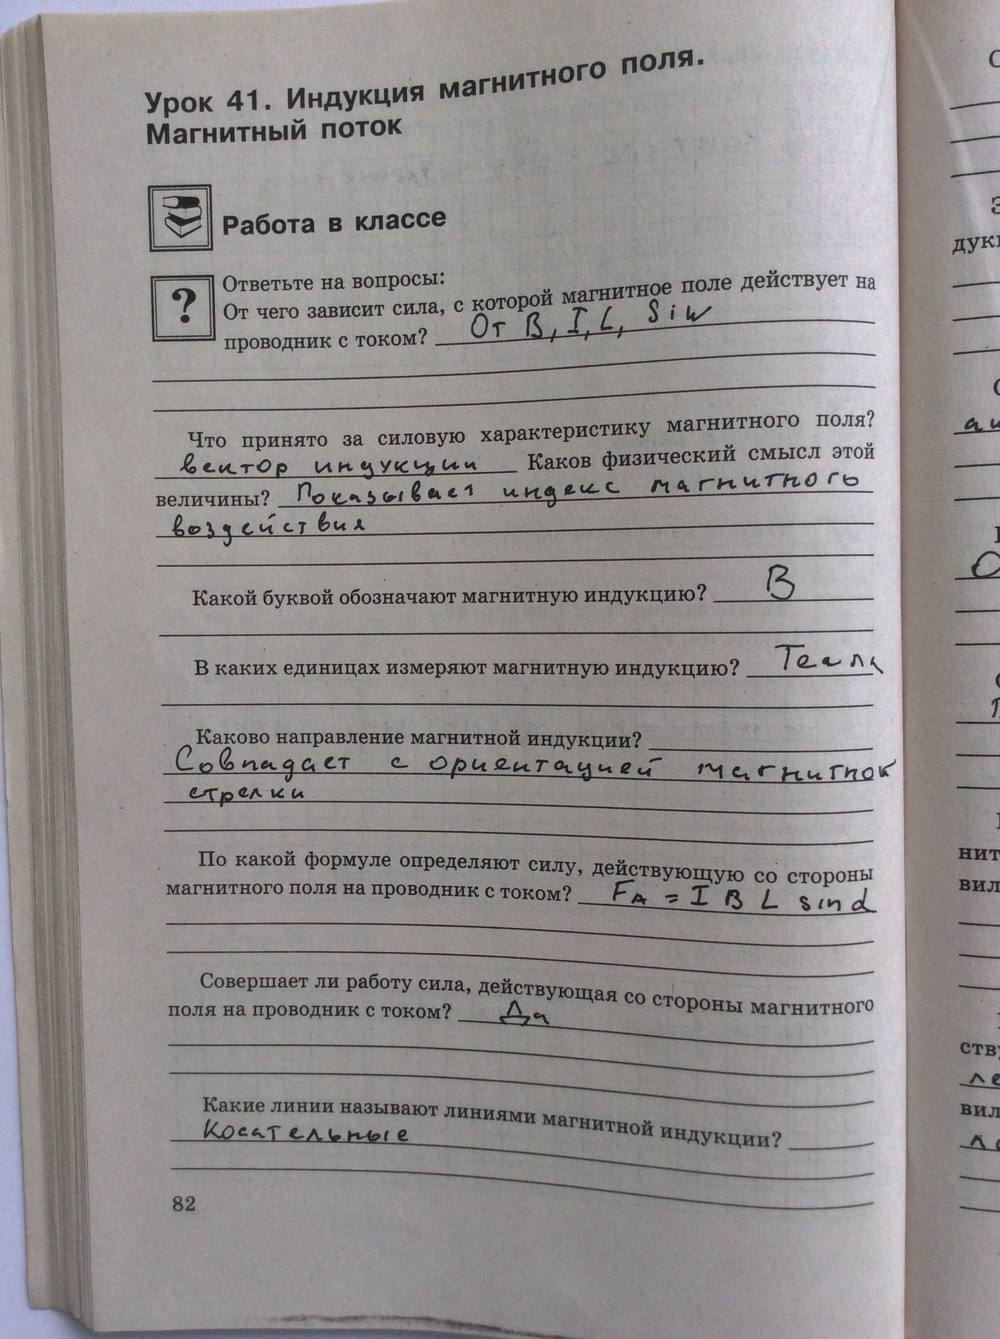 Урок 41. Индукция магнитного поля.
Магнитный поток
Работа в классе
?
Ответьте на вопросы:
От чего зависит сила, с которой магнитное поле действует на
проводник с током? От B, I, L, Sin
Что принято за силовую характеристику магнитного поля?
вектор индукции Каков физический смысл этой
величины? Показывает индекс магнитного
воздействия
Какой буквой обозначают магнитную индукцию? B
В каких единицах измеряют магнитную индукцию? Тесла
Каково направление магнитной индукции?
Совпадает с ориентацией магнитной
стрелки
По какой формуле определяют силу, действующую со стороны
магнитного поля на проводник с током? FA = I B L sin α
Совершает ли работу сила, действующая со стороны магнитного
поля на проводник с током? Да
Какие линии называют линиями магнитной индукции?
Косательные
82
дук
нит
вил
ств
вил